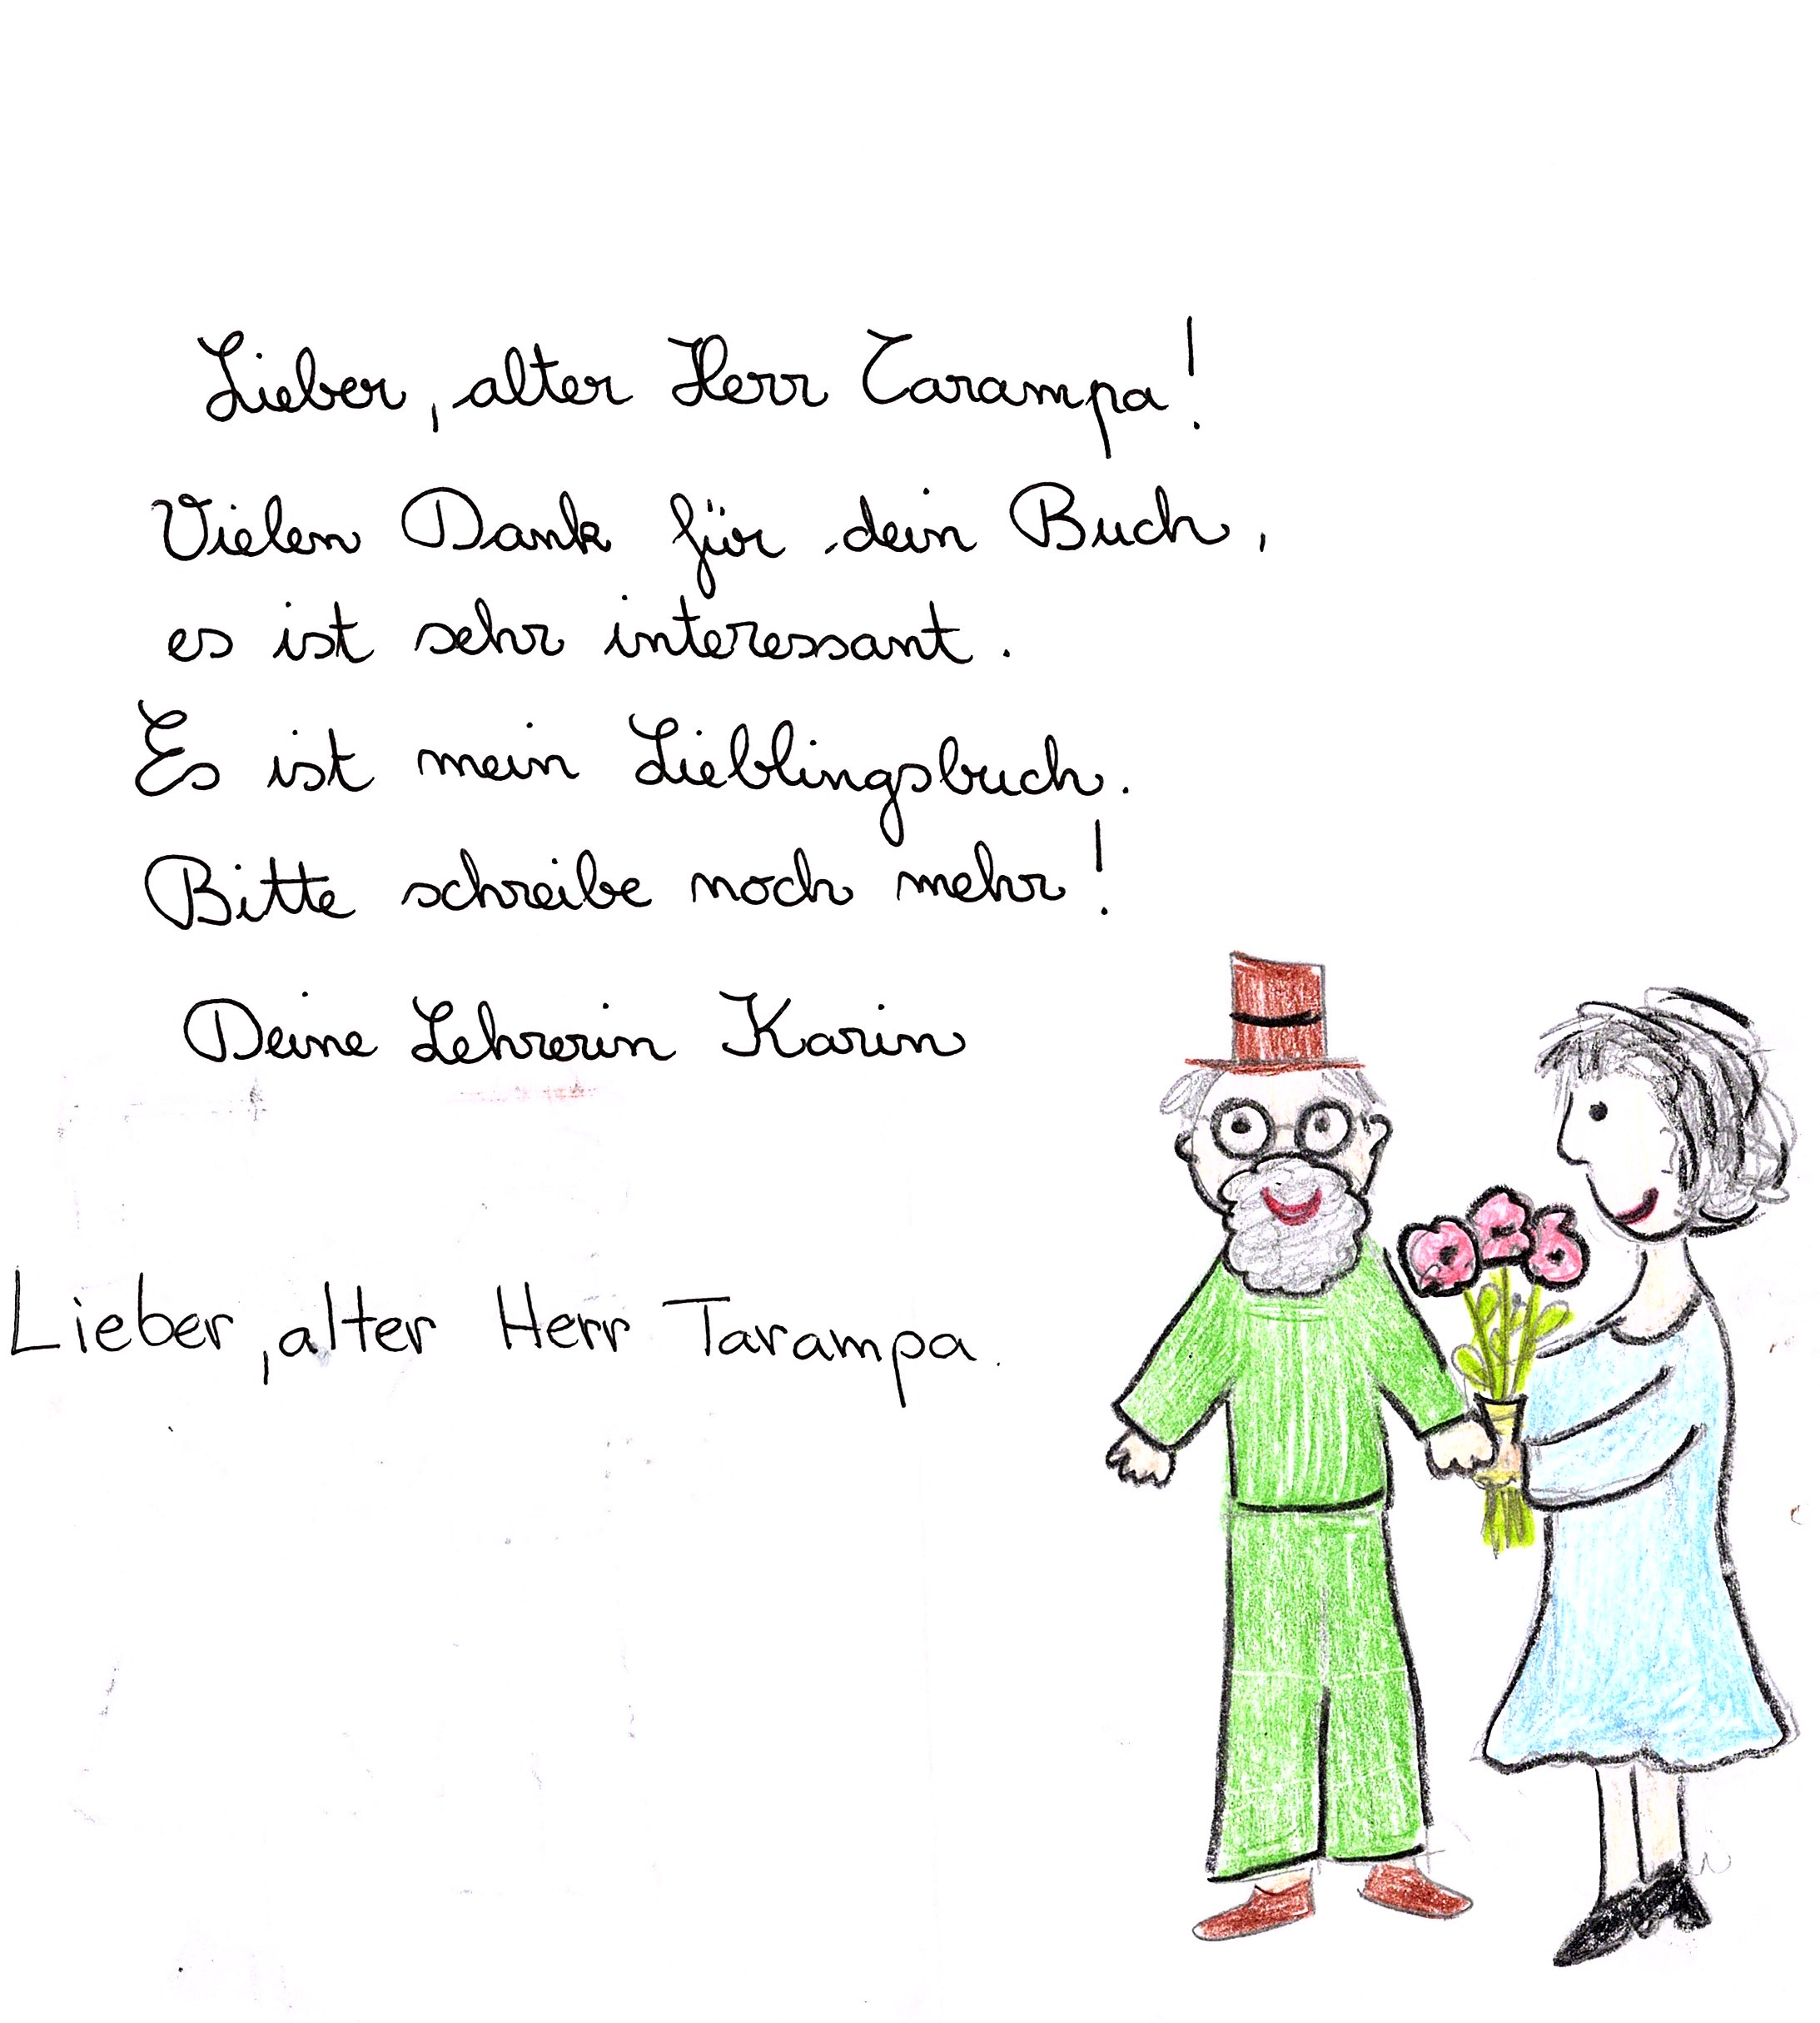 Lieber, alter Herr Tarampa!
Vielen Dank für dein Buch,
es ist sehr interessant.
Es ist mein Lieblingsbuch.
Bitte schreibe noch mehr!
Deine Lehrerin Karin
Lieber, alter Herr Tarampa.